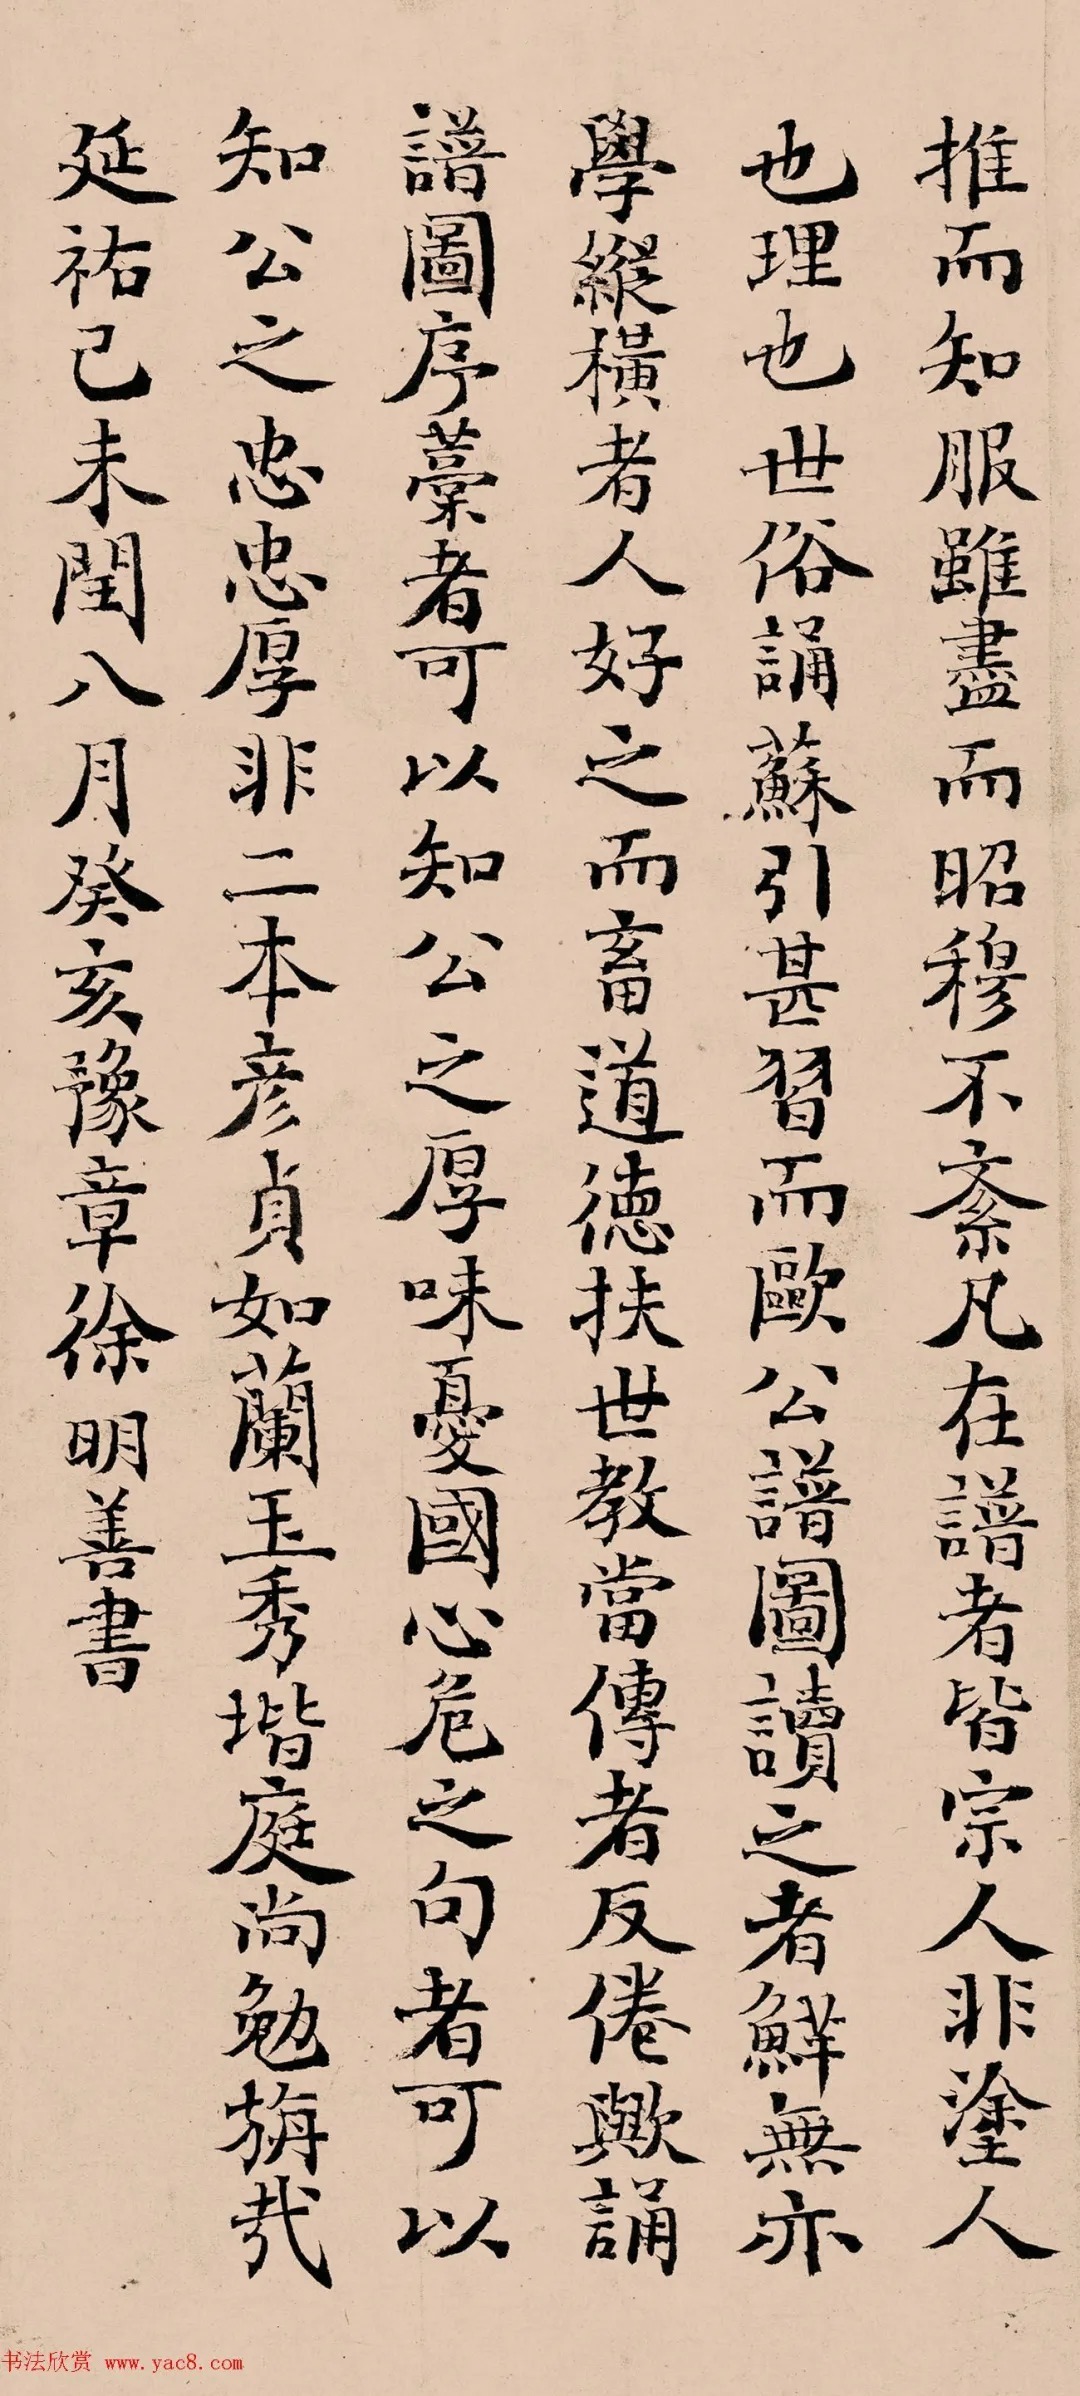 推而知服雖盡而昭穆不紊凡在譜者皆宗人非塗人
也理也世俗誦蘇引甚習而歐公譜圖讀之者鮮無亦
學縱橫者人好之而畜道德扶世教當傳者反倦歟誦
譜圖序藁者可以知公之厚味憂國心危之句者可以
知公之忠忠厚非二本彥貞如蘭玉秀堦庭尚勉旃哉
延祐己未閏八月癸亥豫章徐明善書
书法欣赏 www.yac8.com